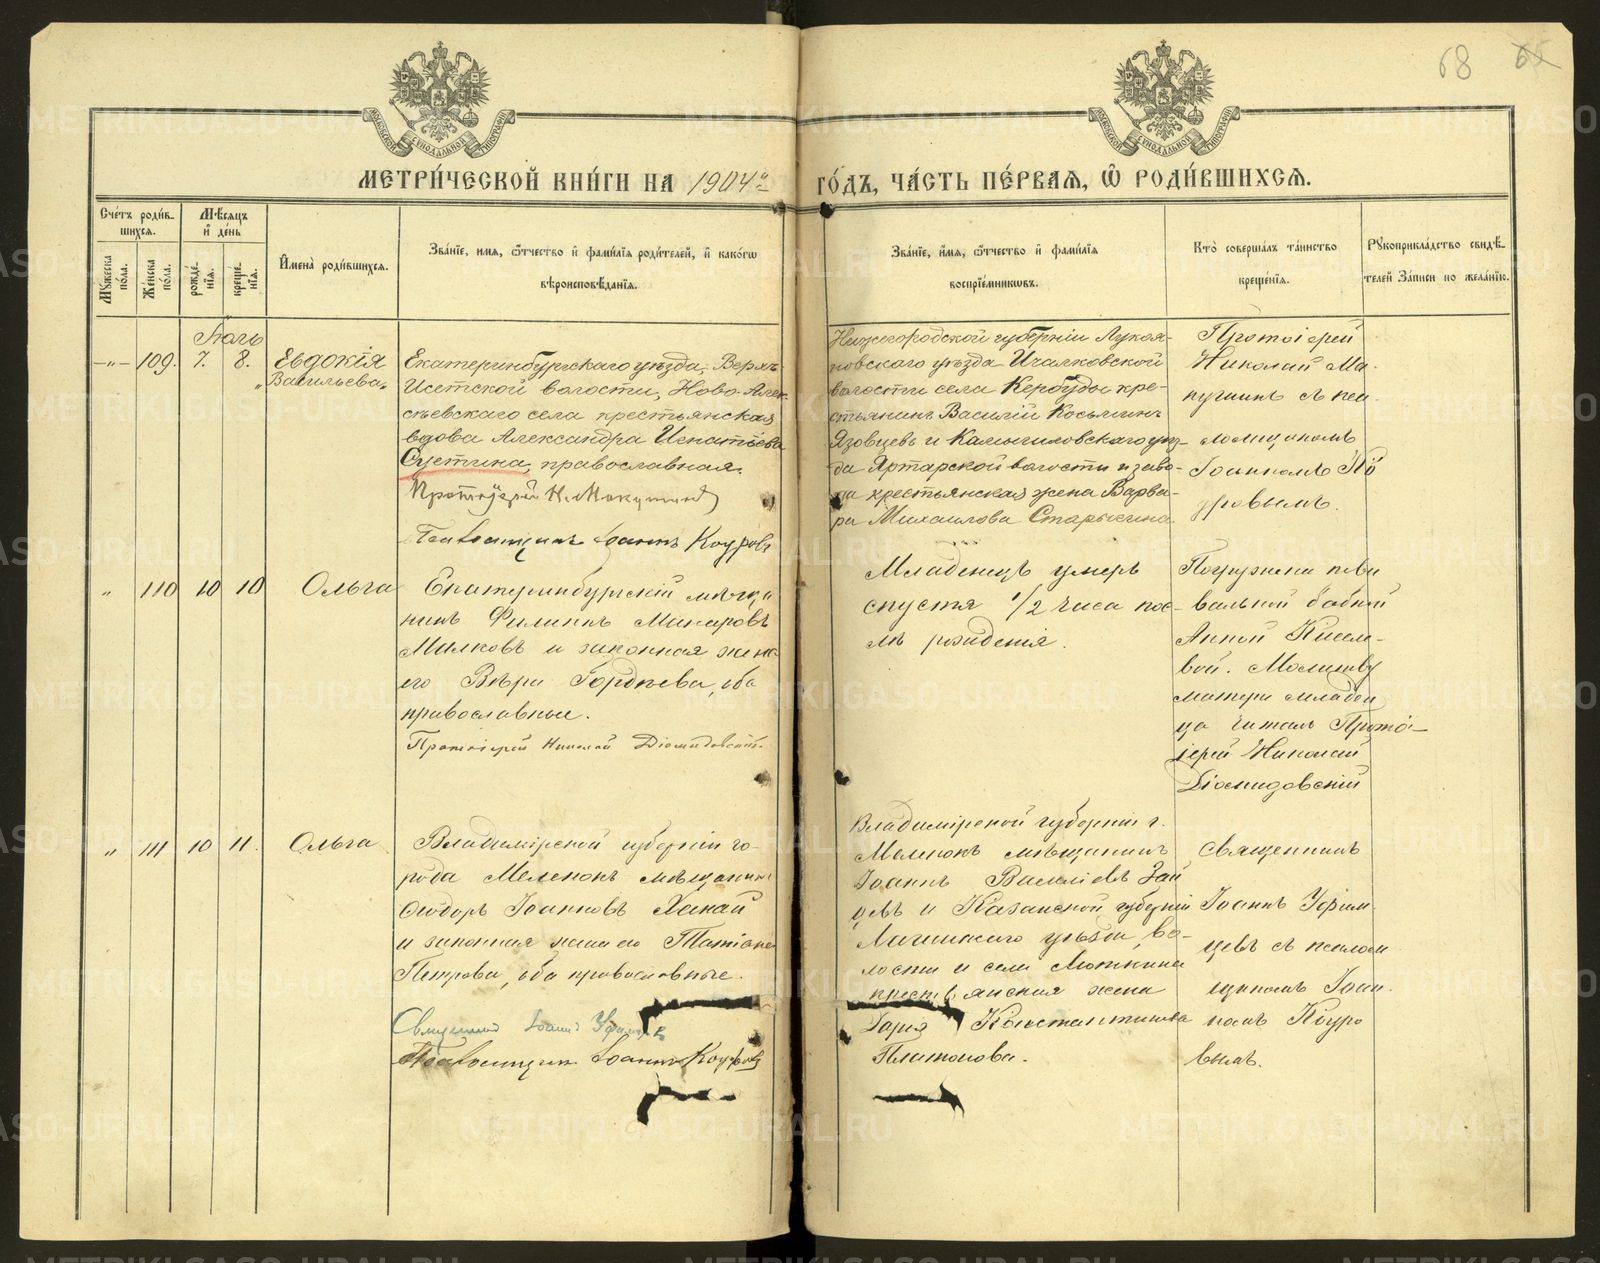 68 65
МОСКОВСКОЙ СѴНОДАЛЬНОЙ ТИПОГРАФІИ
МОСКОВСКОЙ СѴНОДАЛЬНОЙ ТИПОГРАФІИ
МЕТРИ́ЧЕСКОЙ КНИ́ГИ НА 1904й
ГО́ДЪ, ЧА́СТЬ ПЕ́РВАЯ, Ѡ РОДИ́ВШИХСЯ.
Сче́тъ роди́в-
шихся.
Му́жеска по́ла.
Же́нска по́ла.
Мѣ́сяцъ
и҆ де́нь
рожде́нїя.
креще́нїя.
И҆мена̀ роди́вшихся.
Зва́нїе, и҆мя, ѻ҆́тчество и҆ фами́лїя роди́телей, и҆ како́гѡ
вѣроисповѣ́данїя.
Зва́нїе, и҆́мя, ѻ҆́тчество и҆ фами́лїя
воспрїе́мникѡвъ.
Кто̀ соверша́лъ та́инство
креще́нїя.
Рꙋкоприкла́дство свидѣ́-
телей за́писи по жела́нїю.
Іюль
-"- 109. 7. 8.
Евдокія
"Васильева"
Екатеринбургскаго уѣзда, Верхъ-
Исетской волости, Ново-Алек-
сѣевскаго села крестьянская
вдова Александра Игнатіева
Сустина, православная.
Протоіерей Н. Макушинъ
Псаломщикъ Іоаннъ Коуровъ
Нижегородской губерніи Лукоя-
новскаго уѣзда Ичалковской
волости села Кербуды кре-
стьянинъ Василій Косьминъ
Язовцевъ и Камышловскаго уѣз-
да Яртарской волости и заво-
да крестьянская жена Варва-
ра Михаилова Старыгина
Протоіерей
Николай Ма-
кушинъ съ пса-
ломщикомъ
Іоанномъ Ко
уровымъ.
" 110 10 10
Ольга
Екатеринбургскій мѣща
нинъ Филиппъ Макаровъ
Малковъ и законная жена
его Вѣра Гордѣева, оба
православные.
Протоіерей Николай Діомидовскій.
Младенецъ умеръ
спустя 1/2 часа пос-
лѣ рожденія.
Погружена пови
вальной бабкой
Анной Кисел-
вой. Молитву
матери младен
ца читалъ Прото-
іерей Николай
Діомидовскій
" 111 10 11.
Ольга
Владимірской губерніи го-
рода Меленокъ мѣщанинъ
Ѳеодоръ Іоанновъ
и законная жена его Татіана
Петрова, оба православные.
Священникъ Іоаннъ Уфимцевъ
Псаломщикъ Іоаннъ Коуровъ
Владимірской губерніи г.
Меленокъ мѣщанинъ
Іоаннъ Василіевъ Зай
цевъ и Казанской губерніи
Лаишскаго уѣзда, во-
лости и села
крестьянская жена
Дарія Константинова
Платонова.
Священникъ
Іоаннъ Уфим-
цевъ съ псалом
щикомъ Іоан-
номъ Коуро
вымъ.
METRIKI.GASO-URAL.RU